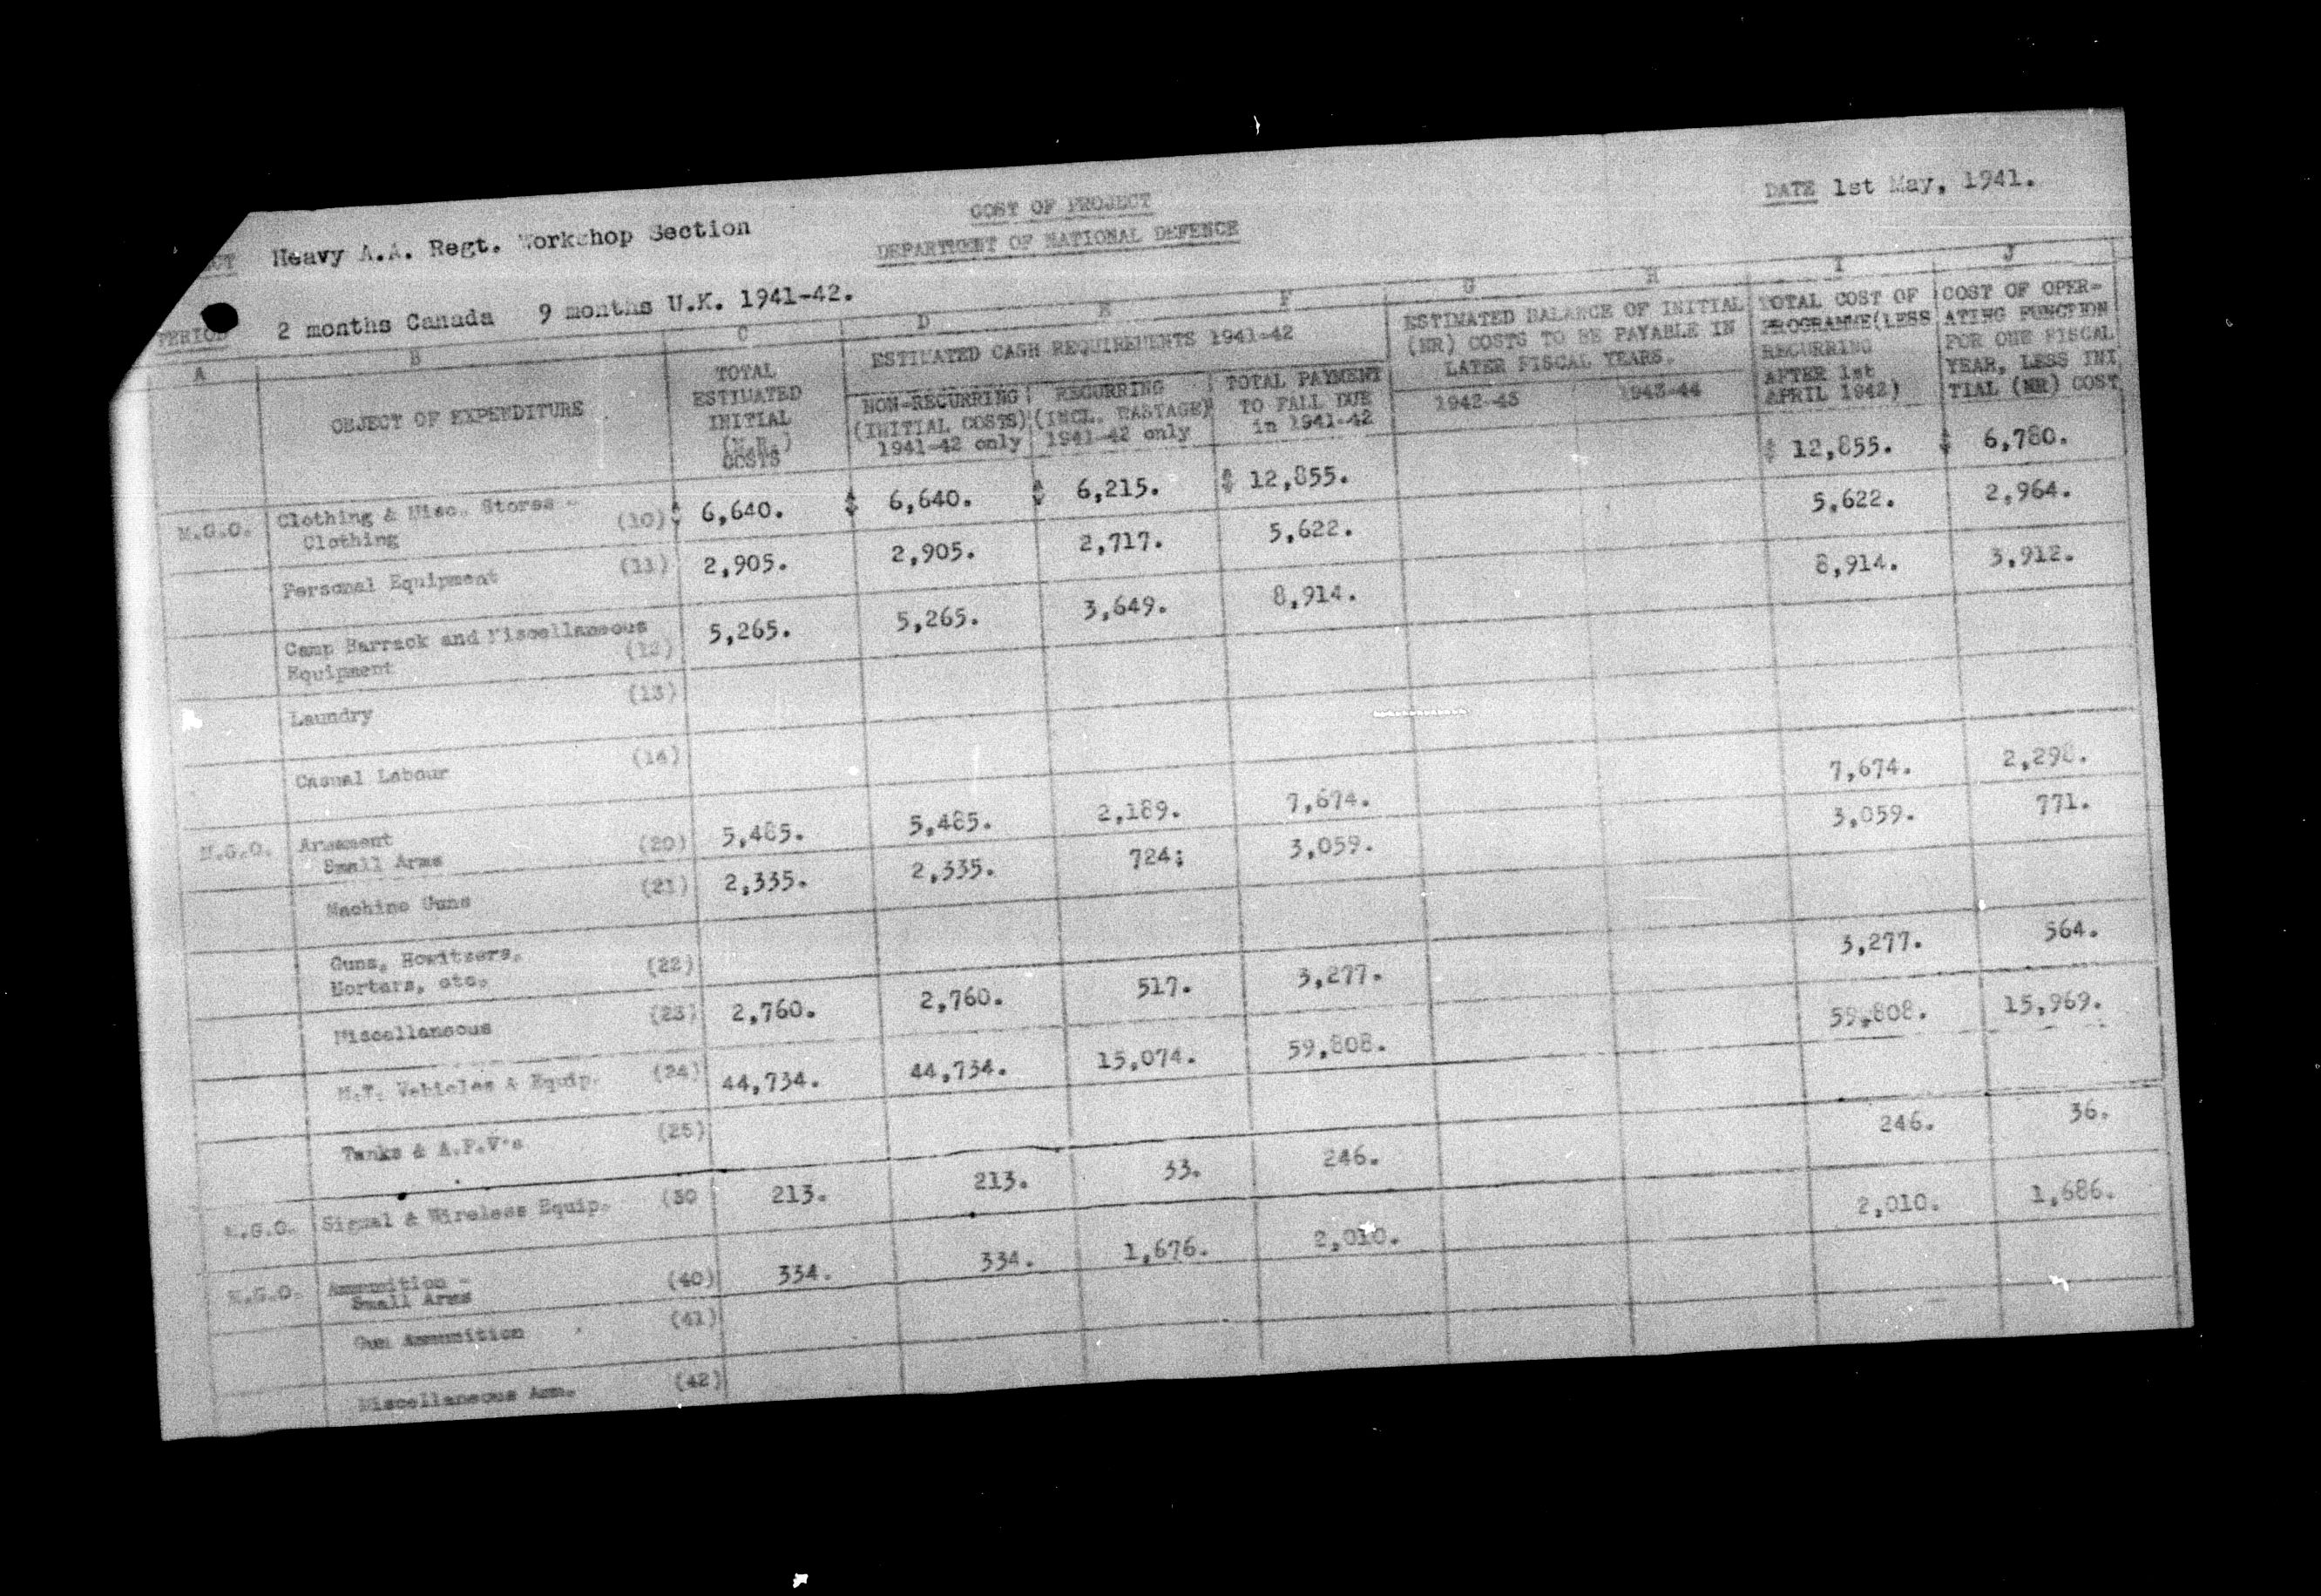 COST OF PROJECT
DEPARTMENT OF NATIONAL DEFENCE
DATE 1st May, 1941.
Heavy A.A. Regt. Workshop Section
PERIOD 2 months Canada 9 months U.K. 1941-42.
A B C D E F G H I J
OBJECT OF EXPENDITURE
TOTAL ESTIMATED INITIAL (N.R.) COSTS
ESTIMATED CASH REQUIREMENTS 1941-42
NON-RECURRING (INITIAL COSTS) 1941-42 only
RECURRING (INCL. WASTAGE) 1941-42 only
TOTAL PAYMENT TO FALL DUE in 1941-42
ESTIMATED BALANCE OF INITIAL (NR) COSTS TO BE PAYABLE IN LATER FISCAL YEARS.
1942-43 1943-44
TOTAL COST OF PROGRAMME(LESS RECURRING AFTER 1st APRIL 1942)
COST OF OPER-ATING FUNCTION FOR ONE FISCAL YEAR, LESS INI TIAL (NR) COST
M.G.O. Clothing & Misc. Stores -
Clothing (10) $ 6,640. $ 6,640. $ 6,215. $ 12,855. $ 12,855. $ 6,780.
Personal Equipment (11) 2,905. 2,905. 2,717. 5,622. 5,622. 2,964.
Camp Barrack and Miscellaneous
Equipment (12) 5,265. 5,265. 3,649. 8,914. 8,914. 3,912.
Laundry (13)
Casual Labour (14)
M.G.O. Armament
Small Arms (20) 5,485. 5,485. 2,189. 7,674. 7,674. 2,298.
Machine Guns (21) 2,335. 2,335. 724; 3,059. 3,059. 771.
Guns, Howitzers,
Mortars, etc. (22)
Miscellaneous (23) 2,760. 2,760. 517. 3,277. 3,277. 564.
M.T. Vehicles & Equip. (24) 44,734. 44,734. 15,074. 59,808. 59,808. 15,969.
Tanks & A.F.V's (25)
M.G.O. Signal & Wireless Equip. (30 213. 213. 33. 246. 246. 36.
M.G.O. Ammunition -
Small Arms (40) 334. 334. 1,676. 2,010. 2,010. 1,686.
Gun Ammunition (41)
Miscellaneous Amm. (42)